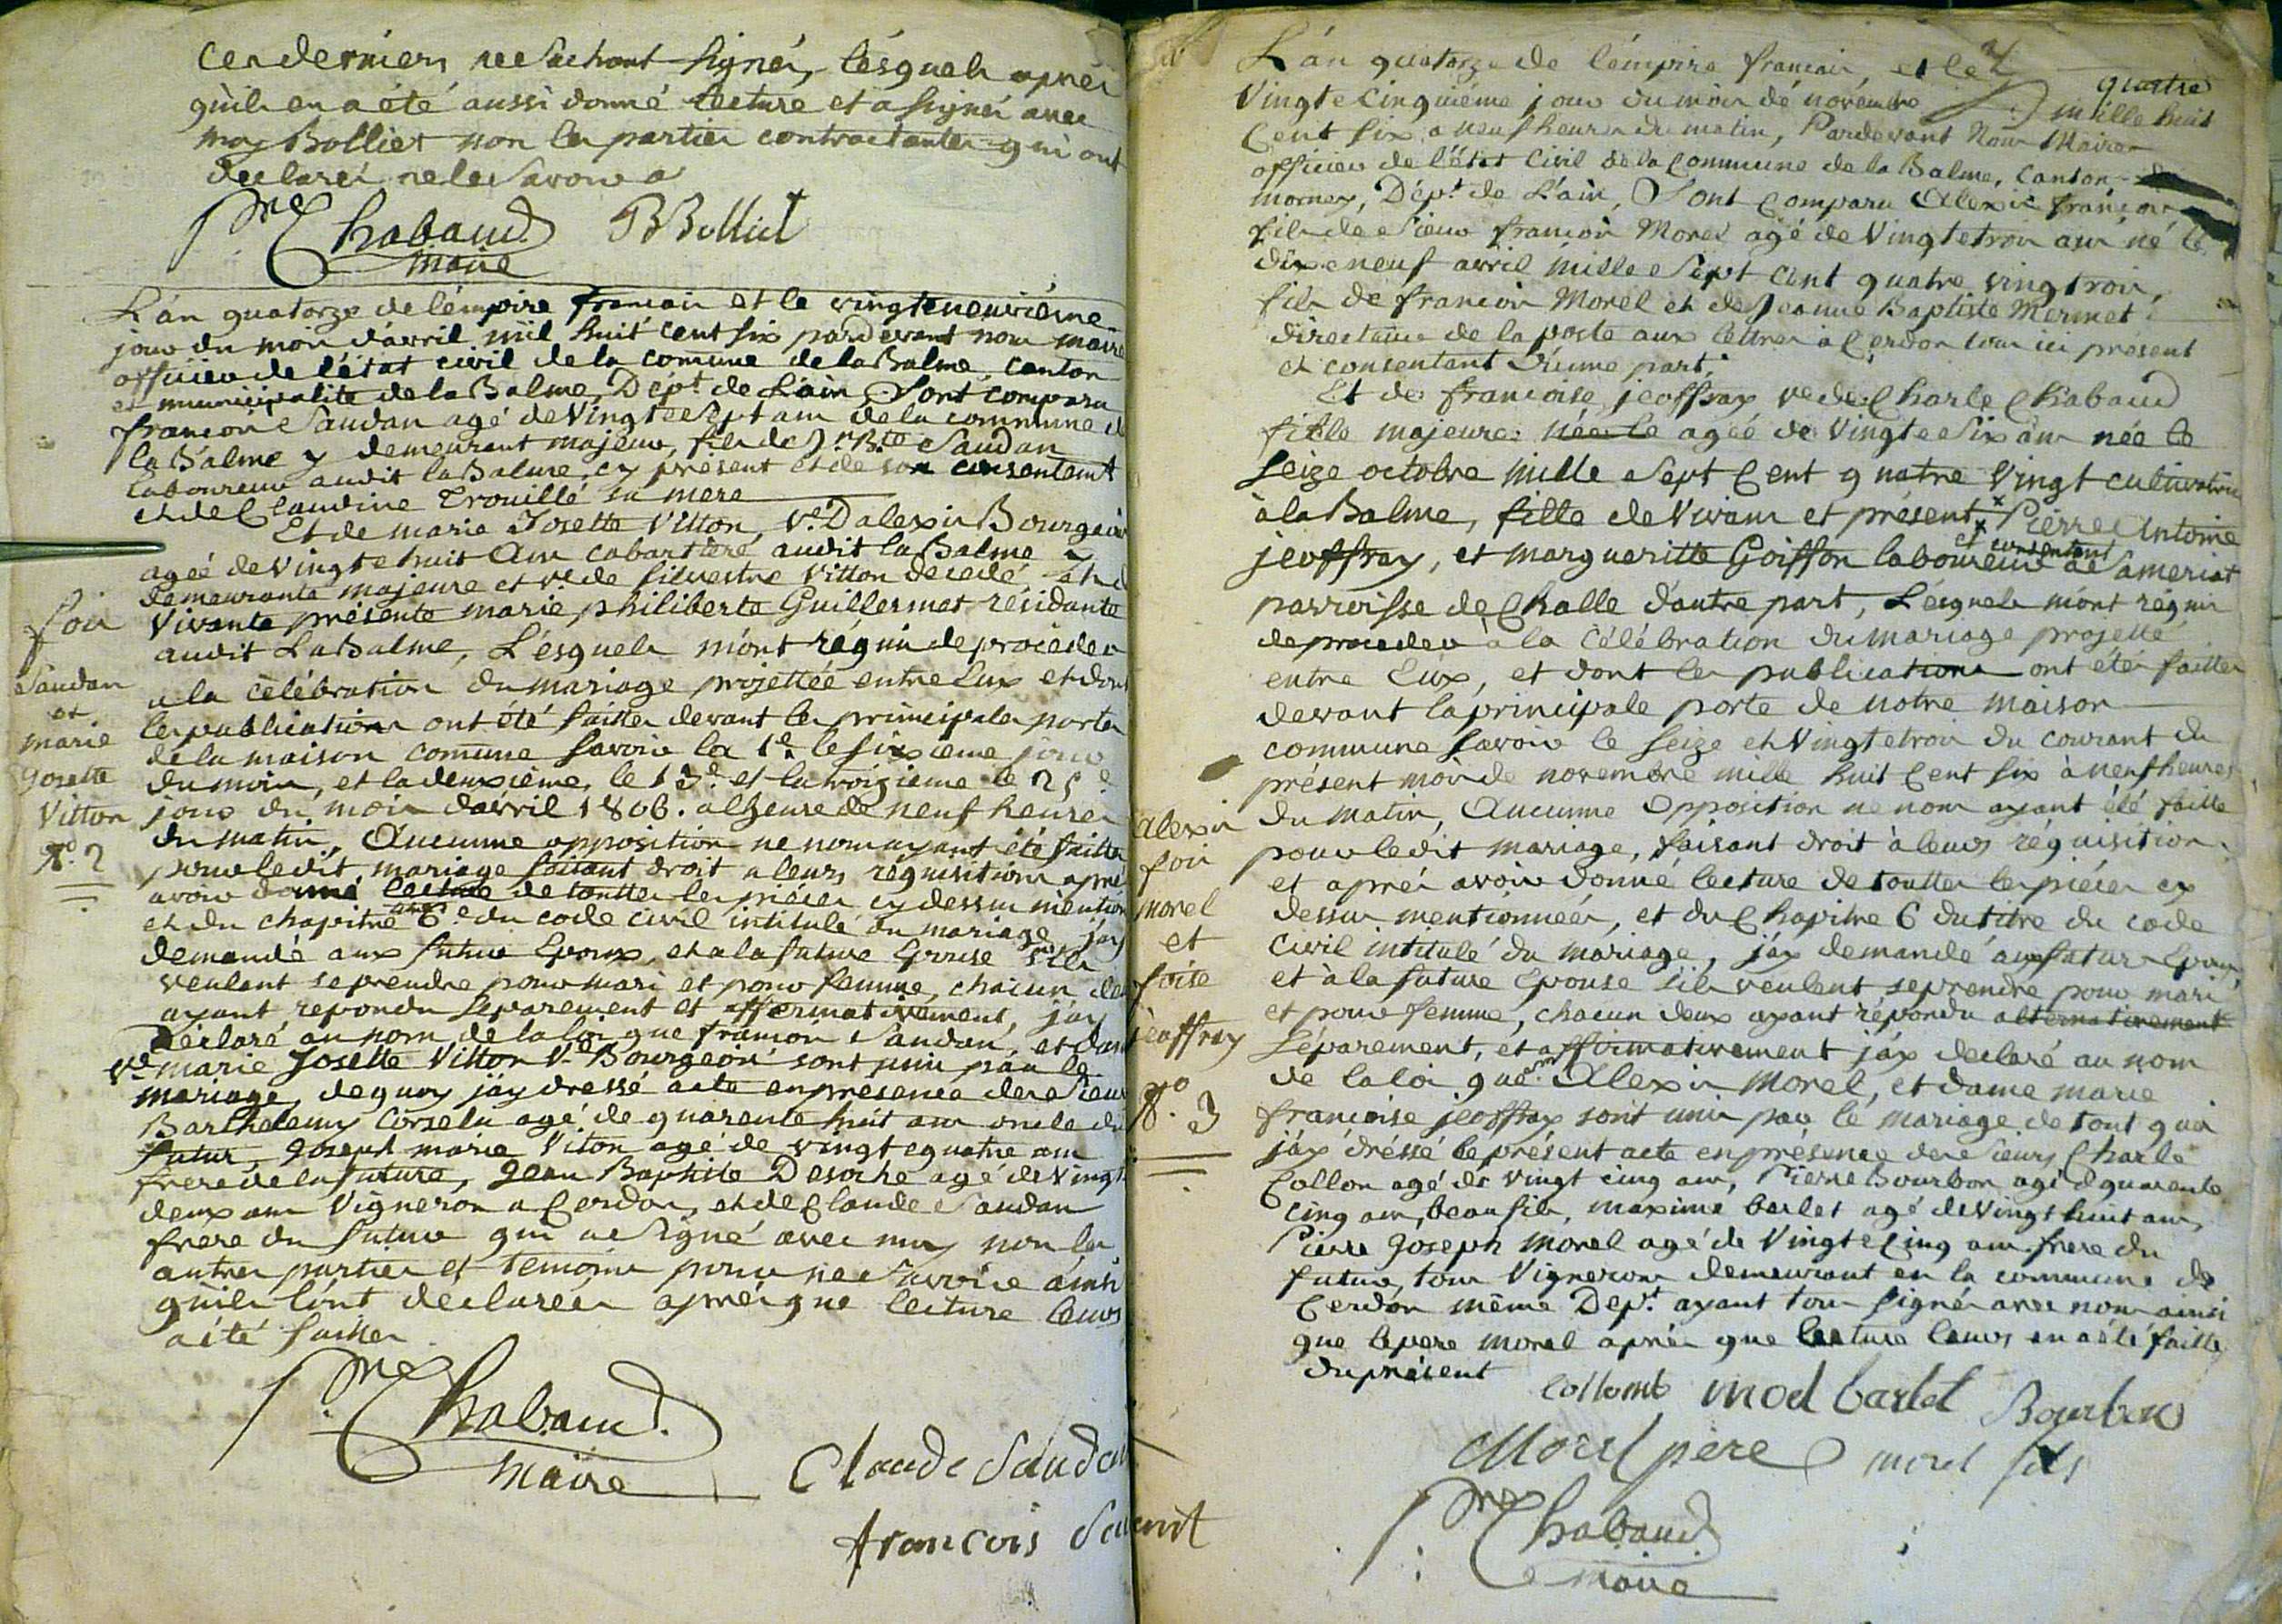 Ces derniers ne sachant signér, lésquels aprés
qu'ils en a été aussi donné lecture et a signér avec
moy Bolliet non les parties contractantes qui ont
declarér ne le savoir a
Pre Chabaud BBolliet
maire
L'án quatorze de l'émpire francais et le vingteneuviéme
jour du mois d'avril mil huit cent six pardevant nous maire
officier de l'état civil de la comune de la Balme, canton
et municipalité de la Balme, Dépt. de L'ain, Sont comparu
francois Saudan agé de Vingtesept ans de la commune de
la Balme y demeurant majeur, fils de Jn. Bte Saudan
laboureur audit la Balme, cy présent et de son consentemt
et de Claudine Trouillé sa mere
Et de marie Josette Vitton, Ve. D'alexis Bourgeois
ageé de Vingtehuit Ans cabartiere audit la Balme y
demeurante majeure et de silvestre Vitton décédé, et de
Vivante présente marie philiberte Guillermet résidante
audit La Balme, L'ésquels m'ónt réquis de proceder
a la célébration du mariage projettée entre Eux et dont
les publications ont été faittes devant les principales portes
de la maison comune savoir la 1e. le sixieme jour
du mois, et la deuxiéme, le 13e. et la troizieme le 25e
jour du mois d'avril 1806. a l'heure de neuf heures
du matin, Aucunne opposition ne nous ayant été faitte
pour ledit mariage faisant droit a leurs réquisitions aprés
avoir donné lecture de touttes les piéces cy dessus mention
et du chapitre 6e. du code civil intitulé du mariage, j'ay
demandé aux futur Epoux, et a la future Epouse s'ils
veulent se prendre pour mari et pour femme, chacun d'eux
ayant répondu séparement et affermativement, j'ay
Déclaré au nom de la loi que francois Saudan, et dame
marie Josette Vitton Ve Bourgeois sont unis par le
mariage, de quoy j'ay dressé acte en présence des Sieurs
Barthelemy Corselu agé de quarente huit ans oncle du
futur, Joseph marie Viton agé de vingtequatre ans
frere de la future, Jean Baptiste Desorhe agé de Vingt
deux ans Vigneron a Cerdon, et de Claude Saudan
frere du futur qui a signé avec moy non les
autres parties et témoins pour ne savoir ainsi
qu'ils l'ont declarées aprés que lecture leurs
a été faittes
Pre Chabaud
maire
Claude Saudan
francois Saudan
fois
Saudan
et
marie
Josette
Vitton
No. 2
L'án quatorze de l'émpire francais, et le
Vingtecinquiéme jour du mois dé novémbre mille huit
quatre
Cent six a neuf heures du matin, Pardevant Nous Maires
officier de l'état Civil de la Commune de la Balme, Canton de
mornex, Dépt. de L'ain, Sont Comparu Alexis francois
fils de Sieur francois Morel agé de Vingtetrois ans né le
dixeneuf avril mille Sept cent quatre vingtrois,
fils de francois Morel et de Jeanne Baptiste Mermet
directeur de la poste aux lettres a Cerdon tous ici présent
et consentant d'une part.
Et de francoise jeoffray ve de Charle Chabaud
fille majeure née le ageé de Vingtesix ans née le
seize octobre mille Sept Cent quatre Vingt cultivatrice
à la Balme, fille de Vivans et présent Pierre Antoine
jeoffray, et margueritte Goiffon laboureur de Sameriat
et consentant
parroisse de Challe d'autre part, Lésquels m'ónt réquis
de proceder à la Célébration du mariage projetté
entre Eux, et dont les publications ont étés faittes
devant la principale porte de notre maison
commune savoir le seize et Vingtetrois du courant du
présent mois de novembre mille huit Cent six à neuf heures
du matin, Aucunne Opposition ne nous ayant été faitte
pour ledit mariage, faisant droit à leurs réquisition
et aprés avoir donné lecture de touttes les piéces cy
dessus mentionneés, et du Chapitre 6 du titre du code
Civil intitulé du mariage, j'ay demandé aux futur Epoux
et à la future Epouse s'ils veulent se prendre pour mari
et pour femme, chacun deux ayant répondu alternativement
séparement, et affirmativement j'ay declaré au nom
de la loi que Alexis Morel, et dame marie
francoise jeoffray sont unis par le mariage de tout quoi
j'ay dréssé le présent acte en présence des Sieurs Charle
Collon agé de vingt cinq ans, Pierre Bourbon agé de quarente
cinq ans, beau fils, maxime barlet agé de Vingt huit ans,
Pierre Joseph morel agé de Vingtecinq ans frere du
futur, tous Vignerons demeurant en la commune de
Cerdon même Dépt. ayant tous signés avec nous ainsi
que le pere morel aprés que lecture leurs en a été faitte
du présent
collomb mod barlet Bourbon
Morel pere morel fils
Pre Chabaud
maire
Alexis
fois
morel
et
foise
jeoffray
No. 3